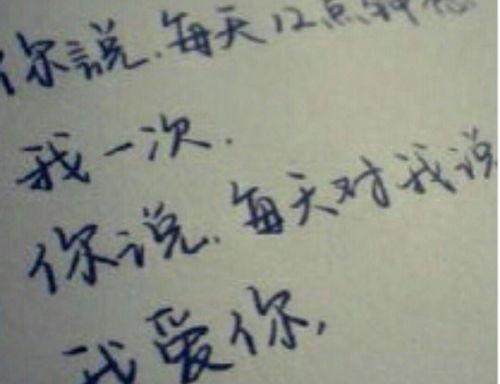 你說.每天12点钟想
我一次.
你说.每天对我说
我爱你,